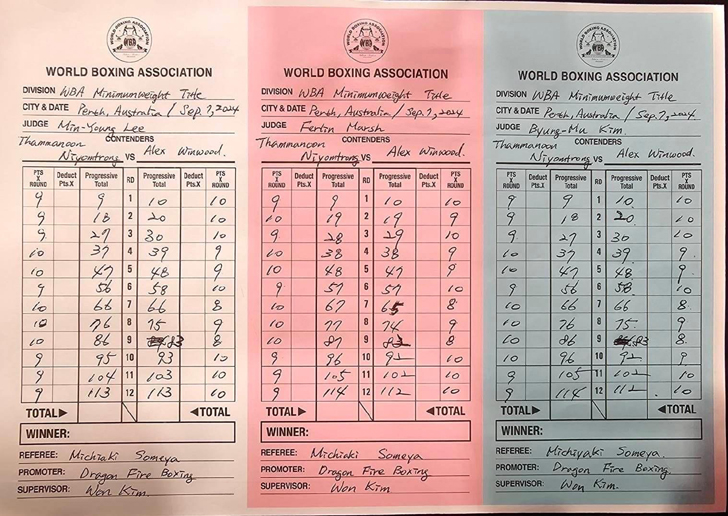 WORLD BOXING ASSOCIATION
WBA
WORLD BOXING ASSOCIATION
DIVISION WBA Minimumweight Title
CITY & DATE Perth, Australia / Sep. 7, 2024
JUDGE Min-Young Lee
CONTENDERS
Thammanoon Niyomtrong VS Alex Winwood.
PTS X ROUND Deduct Pts.X Progressive Total RD Progressive Total Deduct Pts.X PTS X ROUND
9 9 1 10 10
9 18 2 20 10
9 27 3 30 10
10 37 4 39 9
10 47 5 48 9
9 56 6 58 10
10 66 7 66 8
10 76 8 75 9
10 86 9 83 8
9 95 10 93 10
9 104 11 103 10
9 113 12 113 10
TOTAL▶ ◀TOTAL
WINNER:
REFEREE: Michiaki Someya
PROMOTER: Dragon Fire Boxing
SUPERVISOR: Won Kim
WORLD BOXING ASSOCIATION
WBA
WORLD BOXING ASSOCIATION
DIVISION WBA Minimumweight Title
CITY & DATE Perth, Australia / Sep. 7, 2024
JUDGE Ferlin Marsh
CONTENDERS
Thammanoon Niyomtrong VS Alex Winwood.
PTS X ROUND Deduct Pts.X Progressive Total RD Progressive Total Deduct Pts.X PTS X ROUND
9 9 1 10 10
10 19 2 19 9
9 28 3 29 10
10 38 4 38 9
10 48 5 47 9
9 57 6 57 10
10 67 7 65 8
10 77 8 74 9
10 87 9 82 8
9 96 10 92 10
9 105 11 102 10
9 114 12 112 10
TOTAL▶ ◀TOTAL
WINNER:
REFEREE: Michiaki Someya
PROMOTER: Dragon Fire Boxing
SUPERVISOR: Won Kim
WORLD BOXING ASSOCIATION
WBA
WORLD BOXING ASSOCIATION
DIVISION WBA Minimumweight Title
CITY & DATE Perth, Australia / Sep. 7, 2024
JUDGE Byung-Mu Kim.
CONTENDERS
Thammanoon Niyomtrong VS Alex Winwood.
PTS X ROUND Deduct Pts.X Progressive Total RD Progressive Total Deduct Pts.X PTS X ROUND
9 9 1 10 10
9 18 2 20 10
9 27 3 30 10
10 37 4 39 9
10 47 5 48 9
9 56 6 58 10
10 66 7 66 8
10 76 8 75 9
10 86 9 83 8
10 96 10 92 9
9 105 11 102 10
9 114 12 112 10
TOTAL▶ ◀TOTAL
WINNER:
REFEREE: Michiyaki Someya.
PROMOTER: Dragon Fire Boxing.
SUPERVISOR: Won Kim.